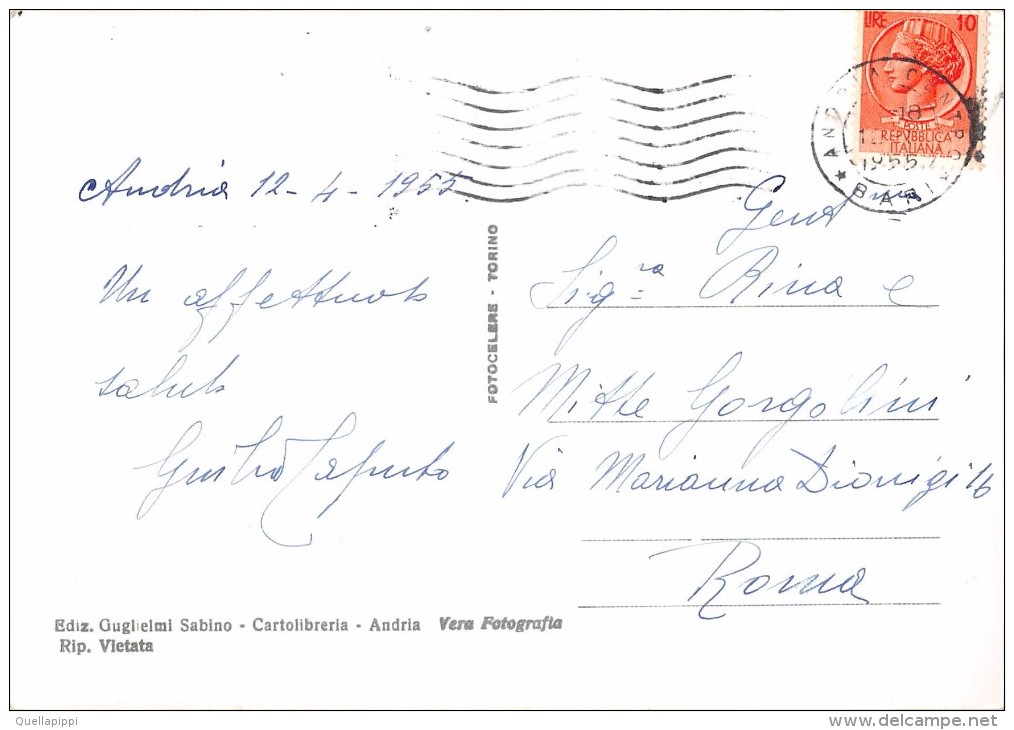 LIRE 10
POSTE
REPVBBLICA
ITALIANA
ANDRIA CENTRO
-18
1955
* BARI *
Andria 12-4-1955
Un affettuoso
saluto
Caputo
FOTOCELERE - TORINO
Gent ma
Sig.ra Rina e
Gorgolini
Via Marianna Dionigi 16
Roma
Ediz. Guglielmi Sabino - Cartolibreria - Andria Vera Fotografia
Rip. Vietata
Quellapippi
www.delcampe.net